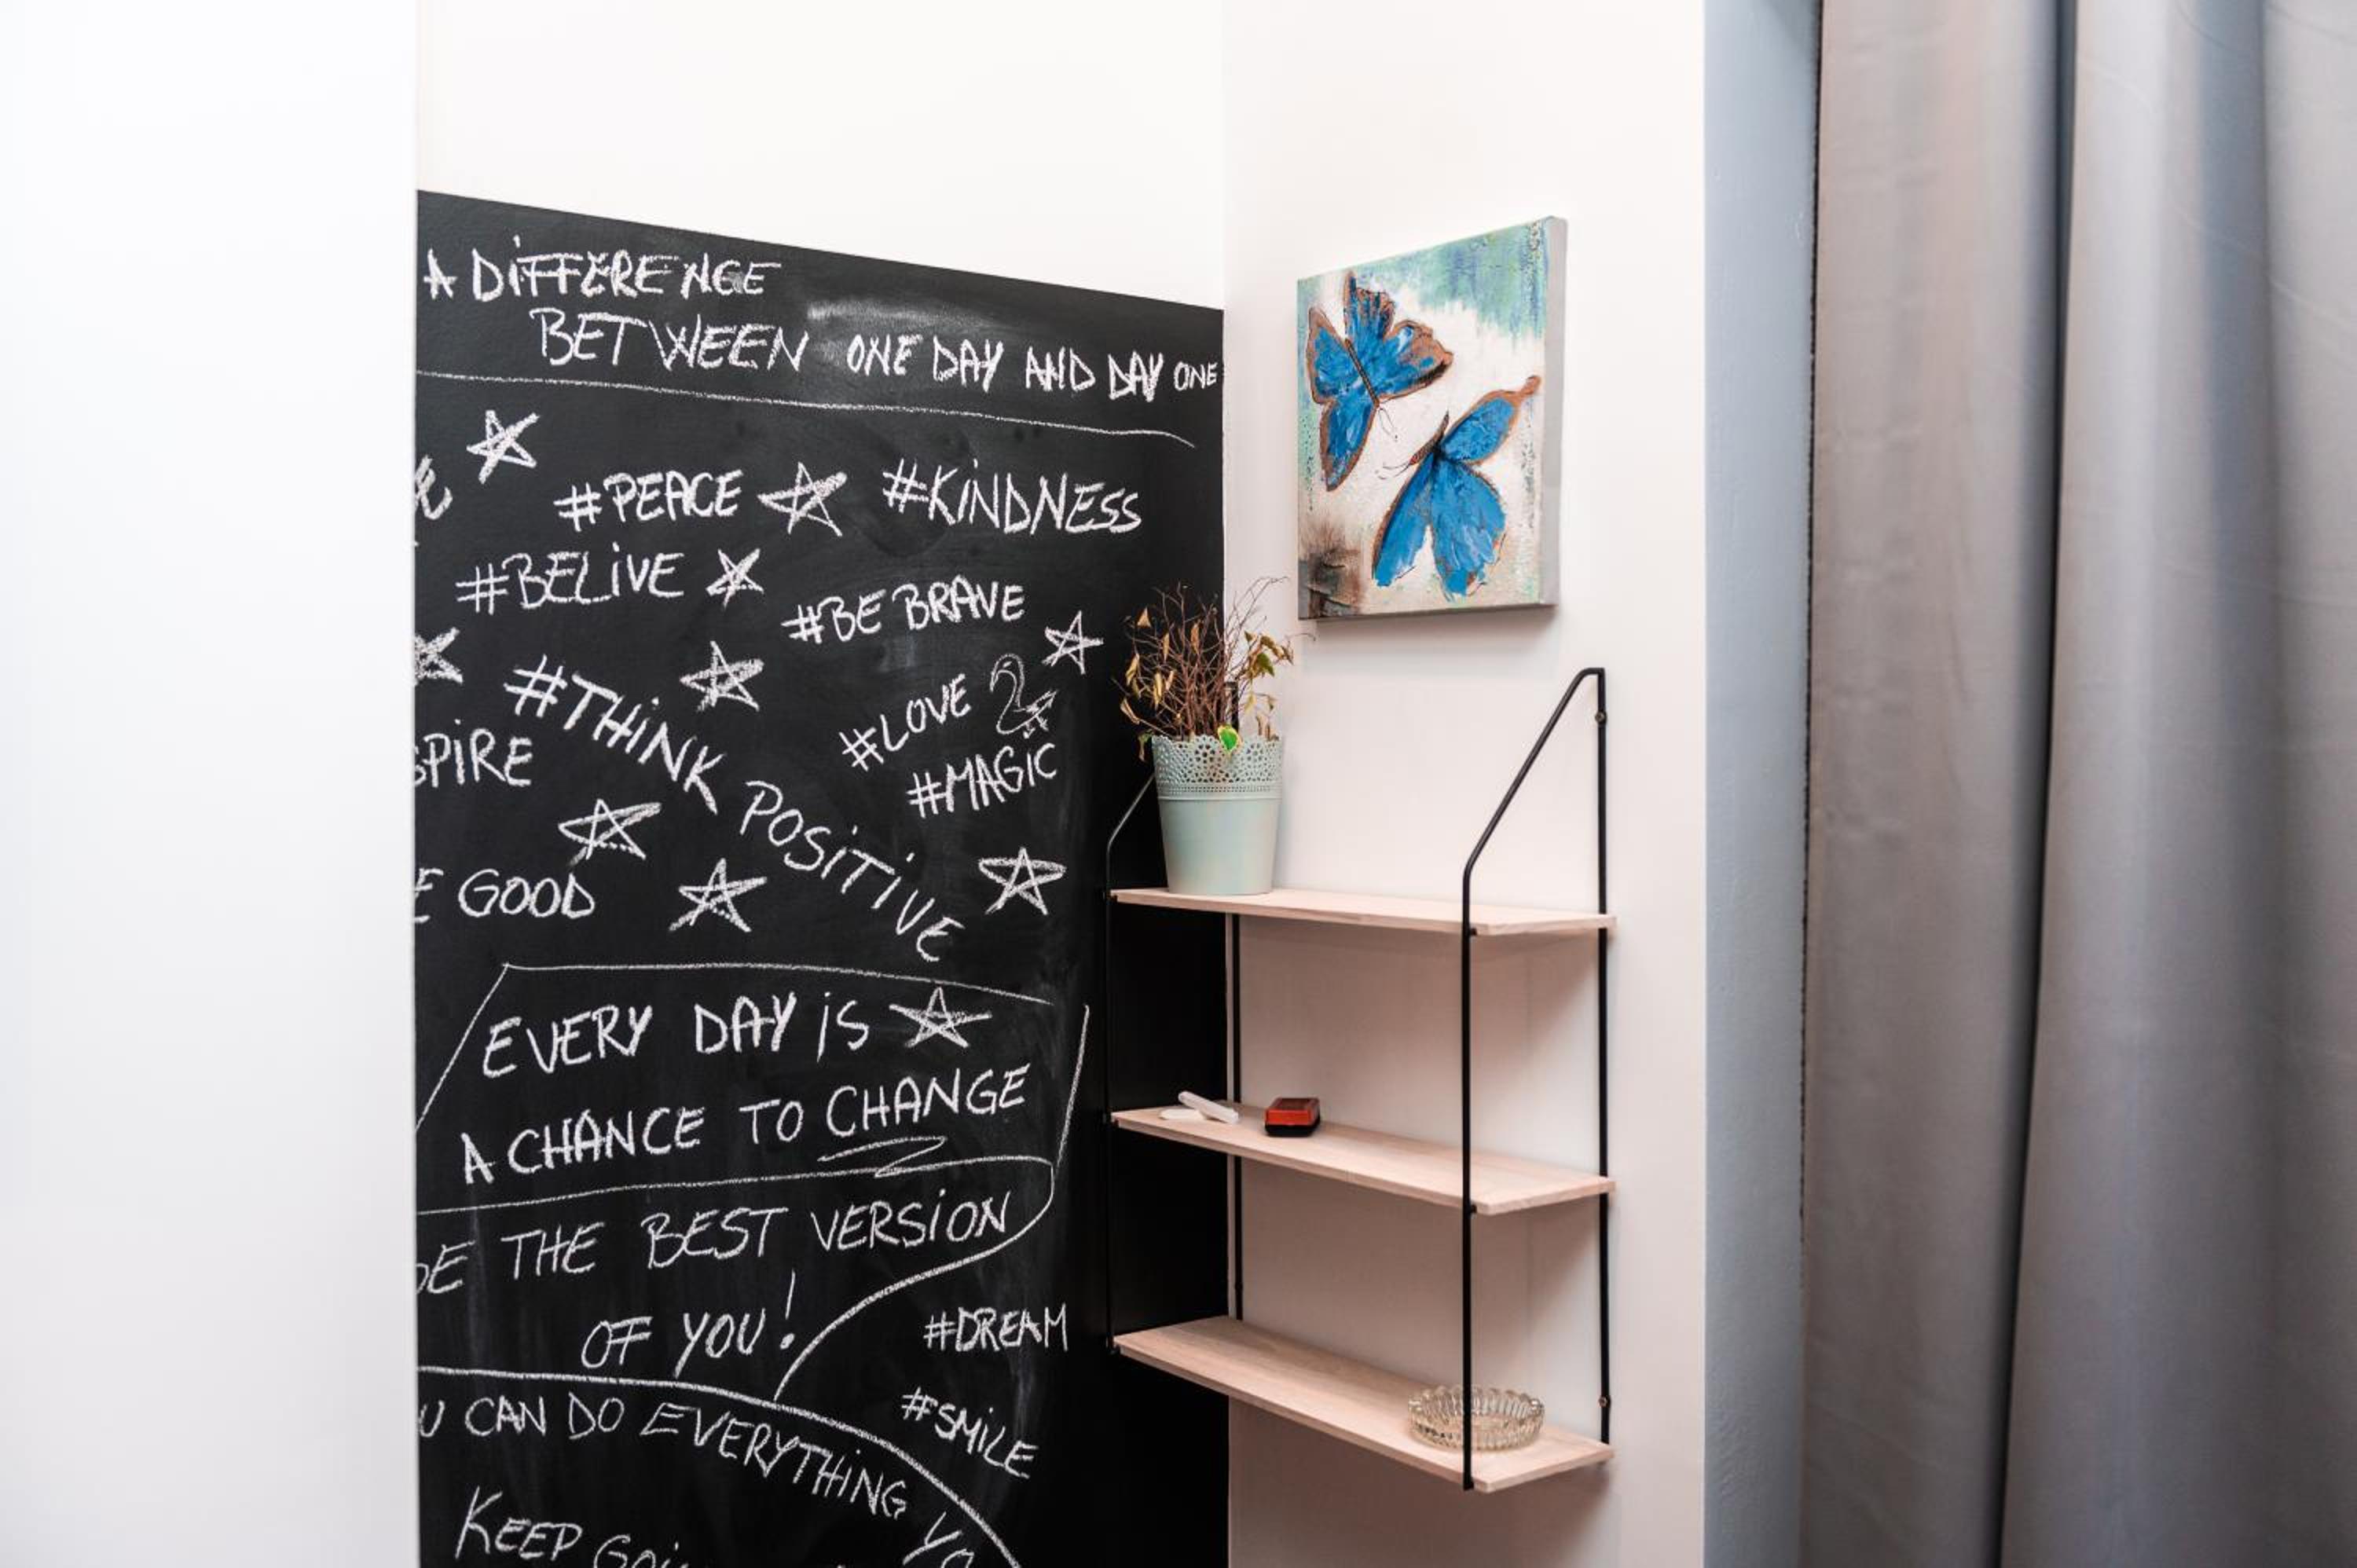 A DiFFERENCE
BETWEEN ONE DAY AND DAY ONE
#PEACE #KiNDNESS
#BELiVE
#BE BRAVE
#THiNK POSiTiVE
#LOVE
#MAGiC
SPiRE
E GOOD
EVERY DAY iS
A CHANCE TO CHANGE
BE THE BEST VERSiON
OF YOU!
#DREAM
#SMiLE
U CAN DO EVERYTHiNG YO
KEEP